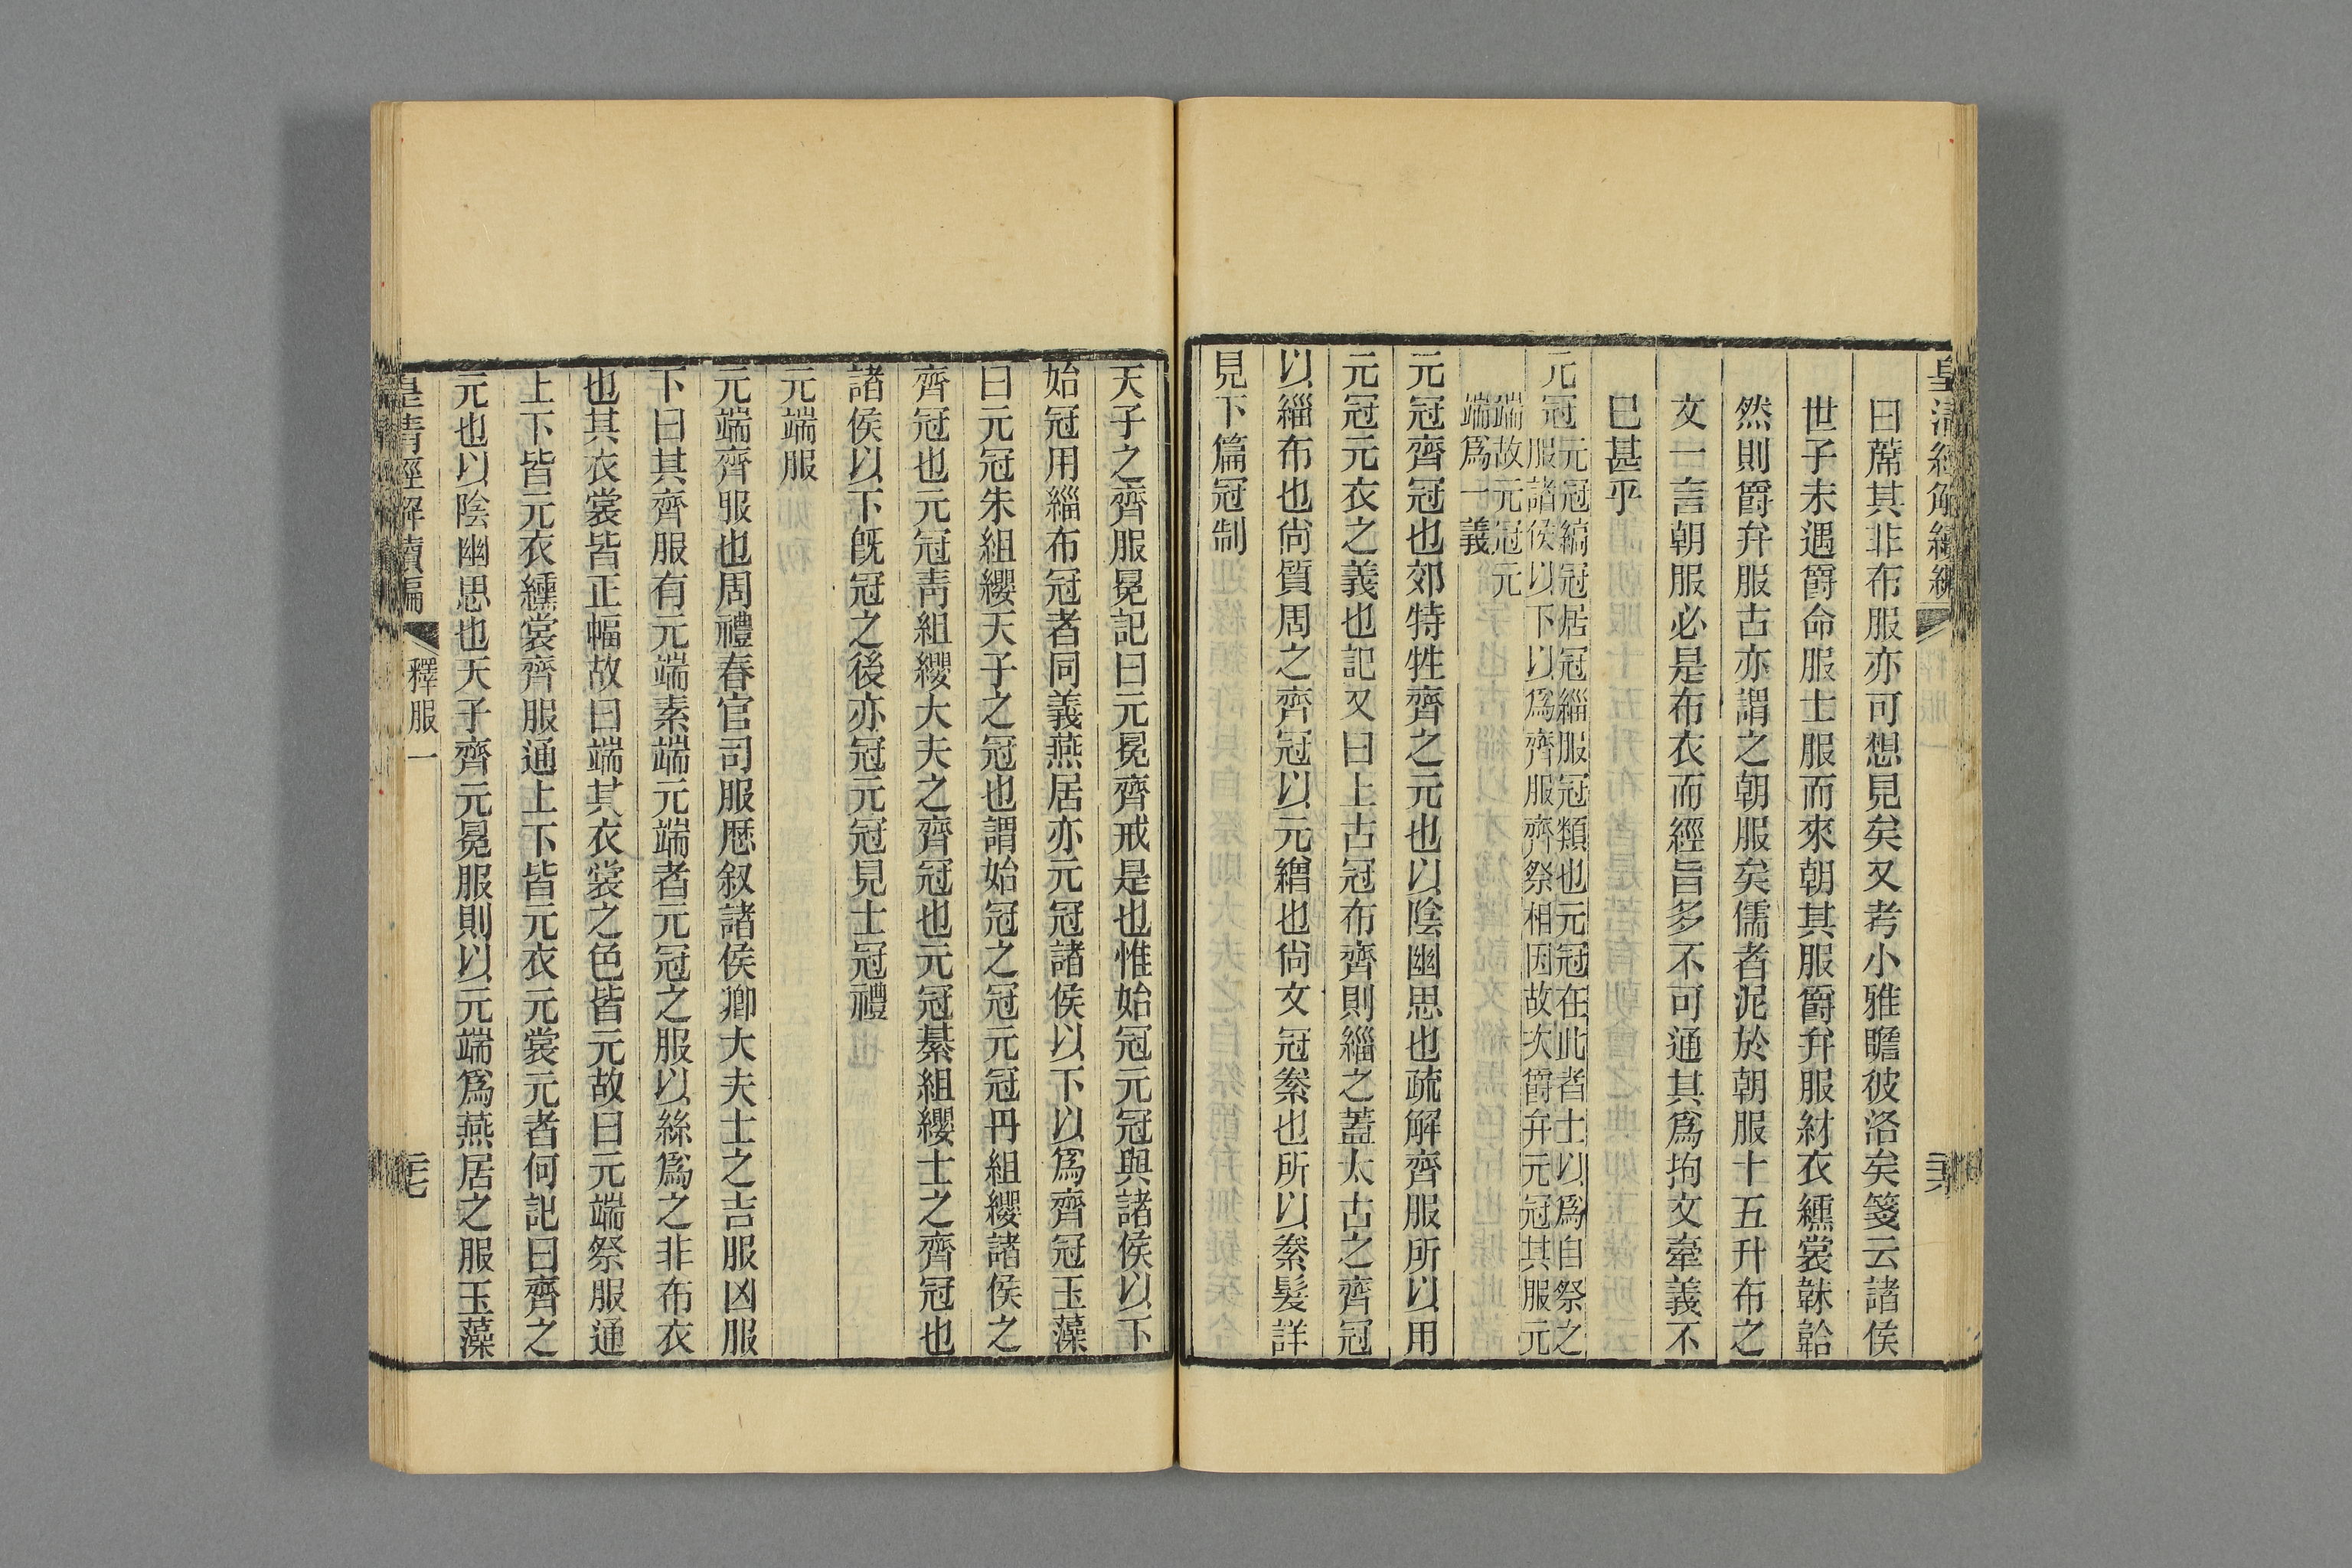 皇清經解續編
曰蓆其非布服亦可想見矣又考小雅瞻彼洛矣箋云諸侯
世子未遇爵命服士服而來朝其服爵弁服紂衣纁裳韎韐
然則爵弁服古亦謂之朝服矣儒者泥於朝服十五升布之
文一言朝服必是布衣而經旨多不可通其爲拘文牽義不
已甚乎
元冠元冠縞冠居冠緇服冠類也元冠在此者士以爲自祭之
服諸侯以下以爲齊服齊祭相因故次爵弁元冠其服元
端故元冠元
端爲一義
元冠齊冠也郊特牲齊之元也以陰幽思也疏解齊服所以用
元冠元衣之義也記又曰上古冠布齊則緇之蓋太古之齊冠
以緇布也尙質周之齊冠以元繒也尙文冠桊也所以桊髮詳
見下篇冠制
天子之齊服冕記曰元冕齊戒是也惟始冠元冠與諸侯以下
始冠用緇布冠者同義燕居亦元冠諸侯以下以爲齊冠玉藻
曰元冠朱組纓天子之冠也謂始冠之冠元冠丹組纓諸侯之
齊冠也元冠靑組纓大夫之齊冠也元冠綦組纓士之齊冠也
諸侯以下旣冠之後亦冠元冠見士冠禮
元端服
元端齊服也周禮春官司服歷叙諸侯卿大夫士之吉服凶服
下曰其齊服有元端素端元端者元冠之服以絲爲之非布衣
也其衣裳皆正幅故曰端其衣裳之色皆元故曰元端祭服通
上下皆元衣纁裳齊服通上下皆元衣元裳元者何記曰齊之
元也以陰幽思也天子齊元冕服則以元端爲燕居之服玉藻
皇清經解續編 釋服一 二七